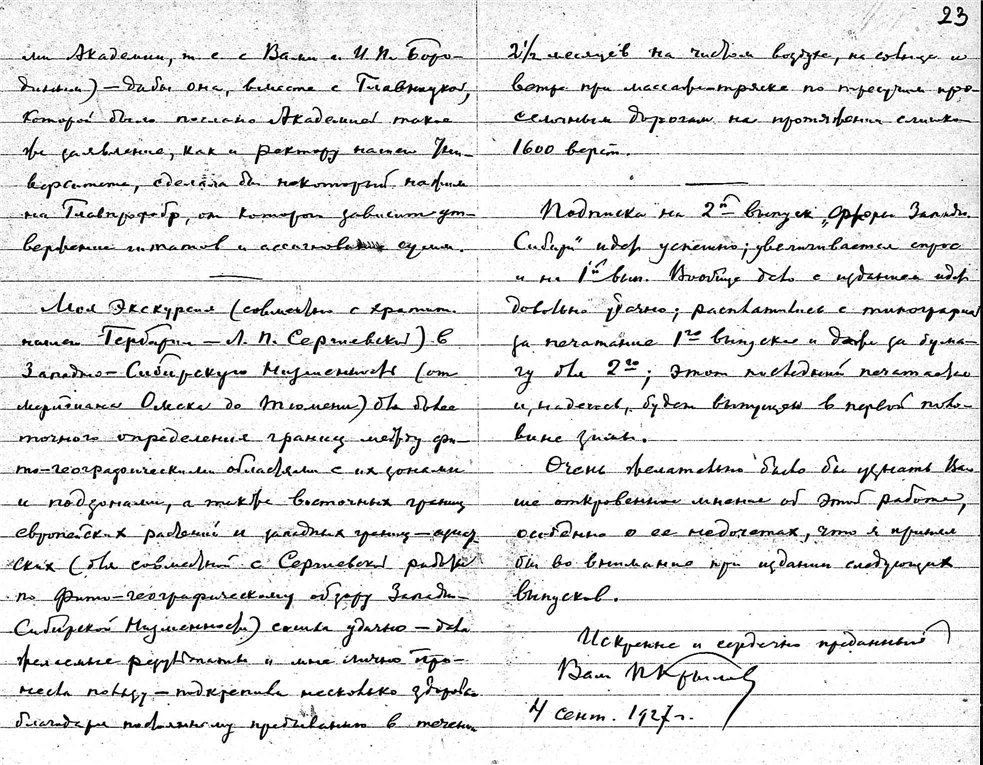 23
ми Академии, т. е. с Вами и И. П. Боро-
диным) — дабы она, вместе с Главнаукой,
которой было послано Академией такое
же заявление, как и ректору нашего Уни-
верситета, сделала бы некоторый нажим
на Главпрофобр, от которого зависит ут-
верждение штатов и ассигнование сумм.
Моя экскурсия (совместно с хранит.
нашего Гербария — Л. П. Сергиевской) в
Западно-Сибирскую Низменность (от
меридиана Омска до Тюмени) для более
точного определения границ между фи-
то-географическими областями с их зонами
и подзонами, а также восточных границ
европейских растений и западных границ — азиат
ских (для совместной с Сергиевской работы
по фито-географическому обзору Западн-
Сибирской Низменности) сошла удачно — дала
желаемые результаты и мне лично при-
несла пользу — подкрепила несколько здоровье
благодаря постоянному пребыванию в течение
2½ месяцев на чистом воздухе, на солнце и
ветре при массаже-тряске по тресучим про-
селочным дорогам на протяжении слишком
1600 верст.
Подписка на 2й выпуск „Флоры Западн.
Сибири" идет успешно; увеличивается спрос
и на 1й вып. Вообще дело с изданием идет
довольно удачно; расплатились с типографией
за печатание 1го выпуска и даже за бума-
гу для 2го; этот последний печатается
и, надеюсь, будет выпущен в первой поло-
вине зимы.
Очень желательно было бы узнать Ва-
ше откровенное мнение об этой работе,
особенно о ее недочетах, что я принял
бы во внимание при издании следующих
выпусков.
Искренне и сердечно преданный
Вам П Крылов
4 сент. 1927 г.